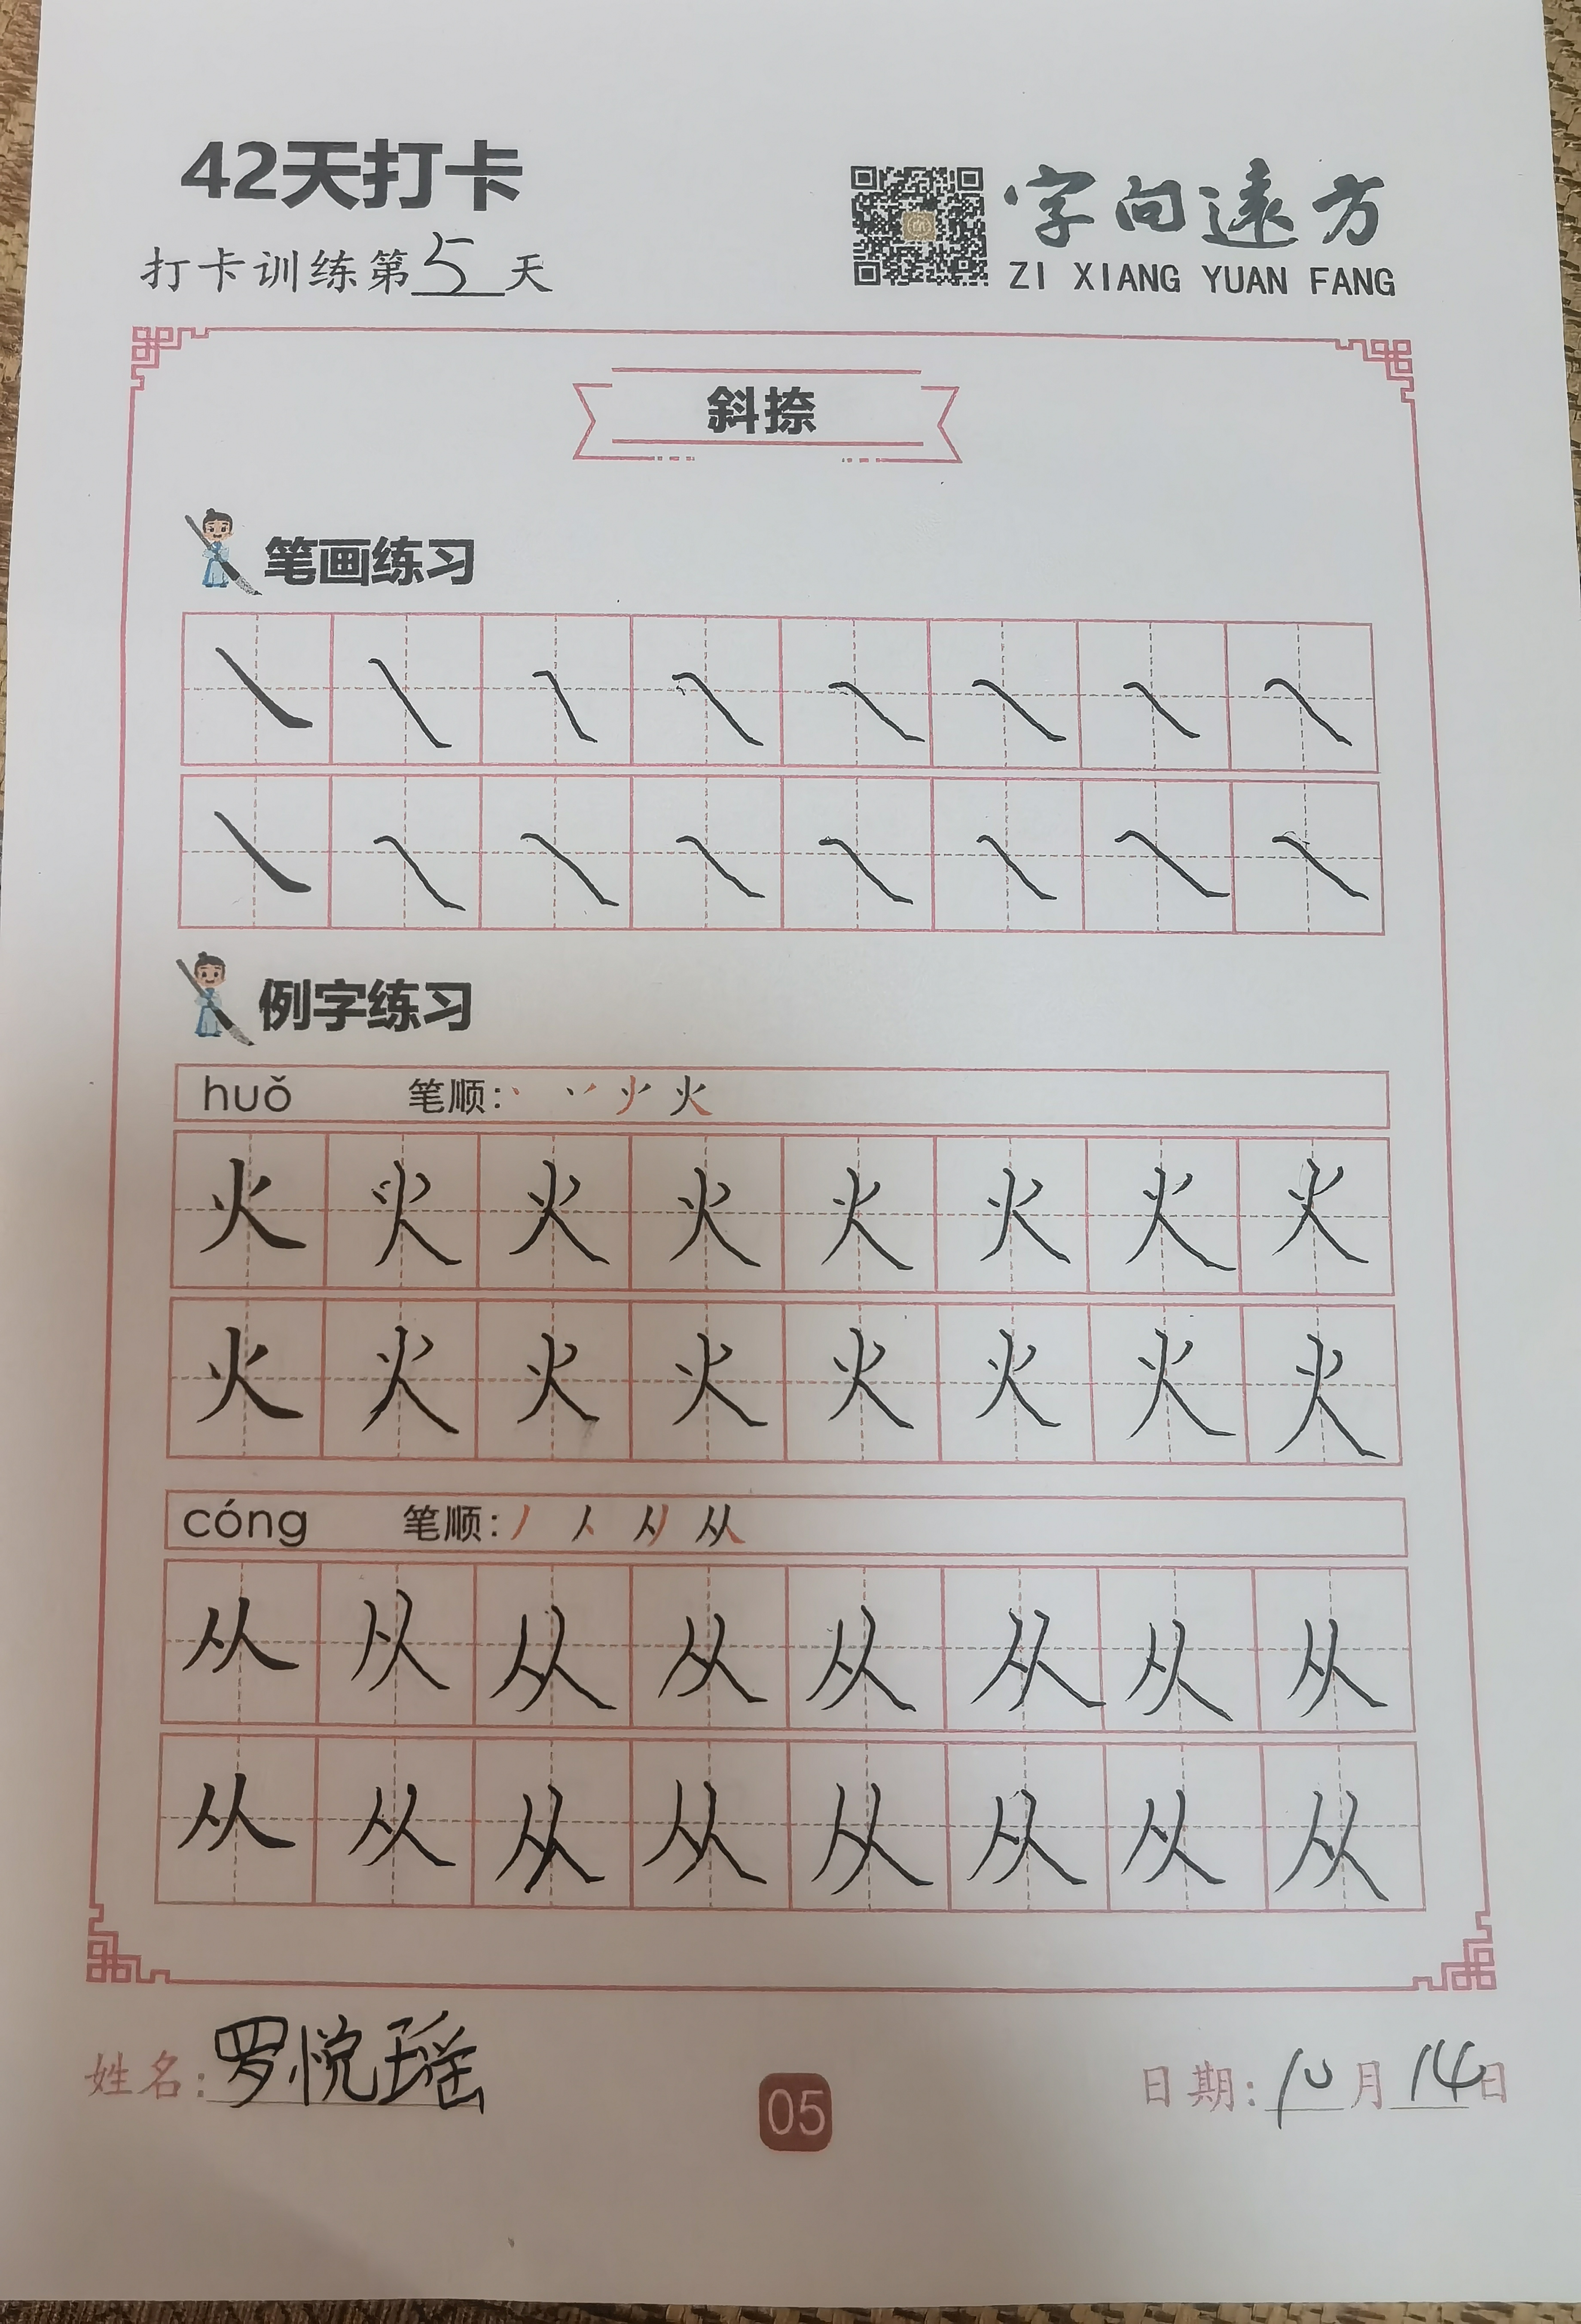 42天打卡
打卡训练第5天
字向遠方
ZI XIANG YUAN FANG
斜捺
笔画练习
㇏ ㇏ ㇏ ㇏ ㇏ ㇏ ㇏ ㇏
㇏ ㇏ ㇏ ㇏ ㇏ ㇏ ㇏ ㇏
例字练习
huǒ 笔顺: 丶 丷 火
火 火 火 火 火 火 火 火
火 火 火 火 火 火 火 火
cóng 笔顺: 丿 人 从
从 从 从 从 从 从 从 从
从 从 从 从 从 从 从 从
姓名: 罗悦瑶
05
日期: 10月14日